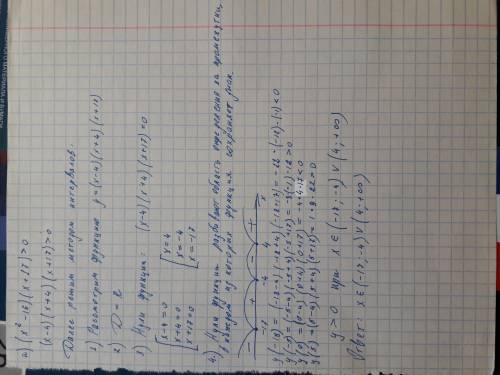 а) (x² - 16)(x + 17) > 0
(x-4)(x+4)(x+17) > 0
Далее решим методом интервалов.
1) Рассмотрим функцию y = (x-4)(x+4)(x+17)
2) D = R
3) Нули функции: (x-4)(x+4)(x+17) = 0
x-4=0 x=4
x+4=0 x=-4
x+17=0 x=-17
4) Нули функции разбивают область определения на промежутки,
в котором из которых функция сохраняет знак.
- + - +
-17 -4 4 x
y(-18) = (-18-4)(-18+4)(-18+17) = -22·(-14)·(-1) < 0
y(-5) = (-5-4)(-5+4)(-5+17) = -9·(-1)·12 > 0
y(0) = (0-4)(0+4)(0+17) = -4·4·17 < 0
y(5) = (5-4)(5+4)(5+17) = 1·9·22 > 0
y > 0 при x ∈ (-17; -4) ∨ (4; +∞)
Ответ: x ∈ (-17; -4) ∨ (4; +∞)